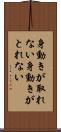 身動きが取れ
ない身動きが
とれない